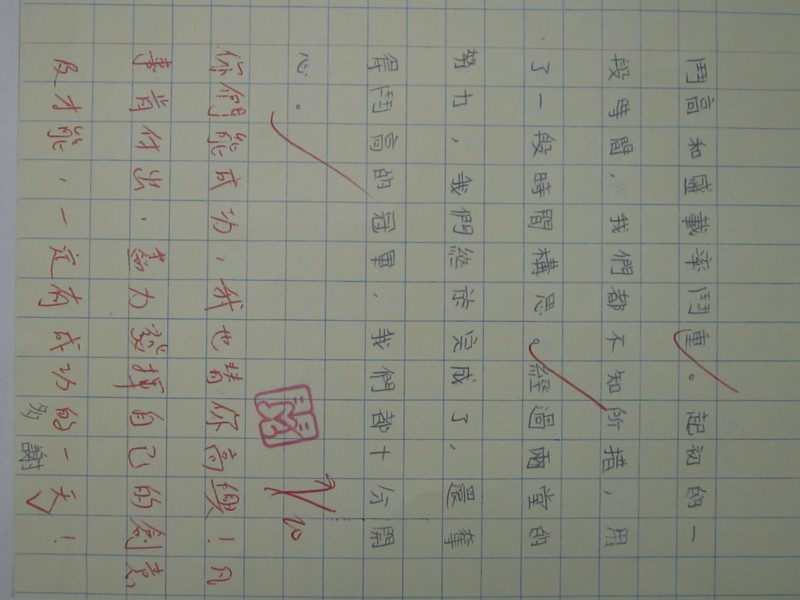 鬥高和盛載率鬥重。起初的一
段時間,我們都不知所措,用
了一段時間構思。經過兩堂的
努力,我們終於完成了,還奪
得鬥高的冠軍,我們都十分開
心。
你們能成功,我也替你高興!凡
事肯付出,努力發揮自己的創意
及才能,一定有成功的一天!
多謝